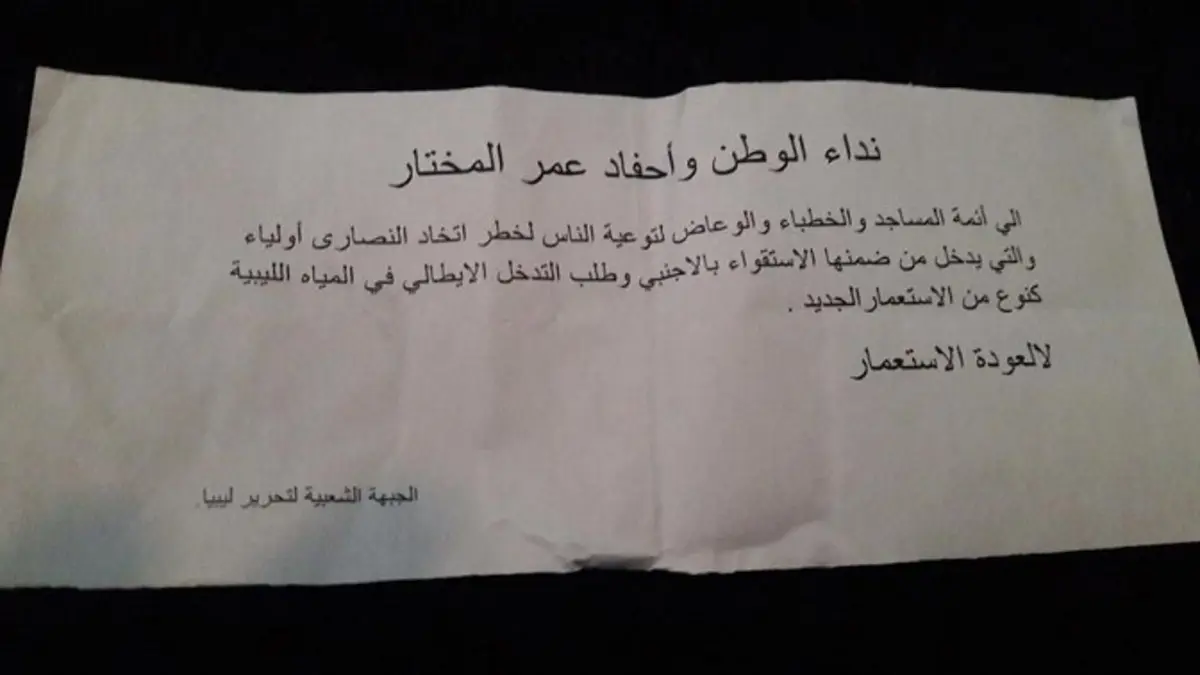 نداء الوطن وأحفاد عمر المختار
الي أئمة المساجد والخطباء والوعاض لتوعية الناس لخطر اتخاد النصارى أولياء
والتي يدخل من ضمنها الاستقواء بالاجنبي وطلب التدخل الايطالي في المياه الليبية
كنوع من الاستعمارالجديد .
لالعودة الاستعمار
الجبهة الشعبية لتحرير ليبيا.